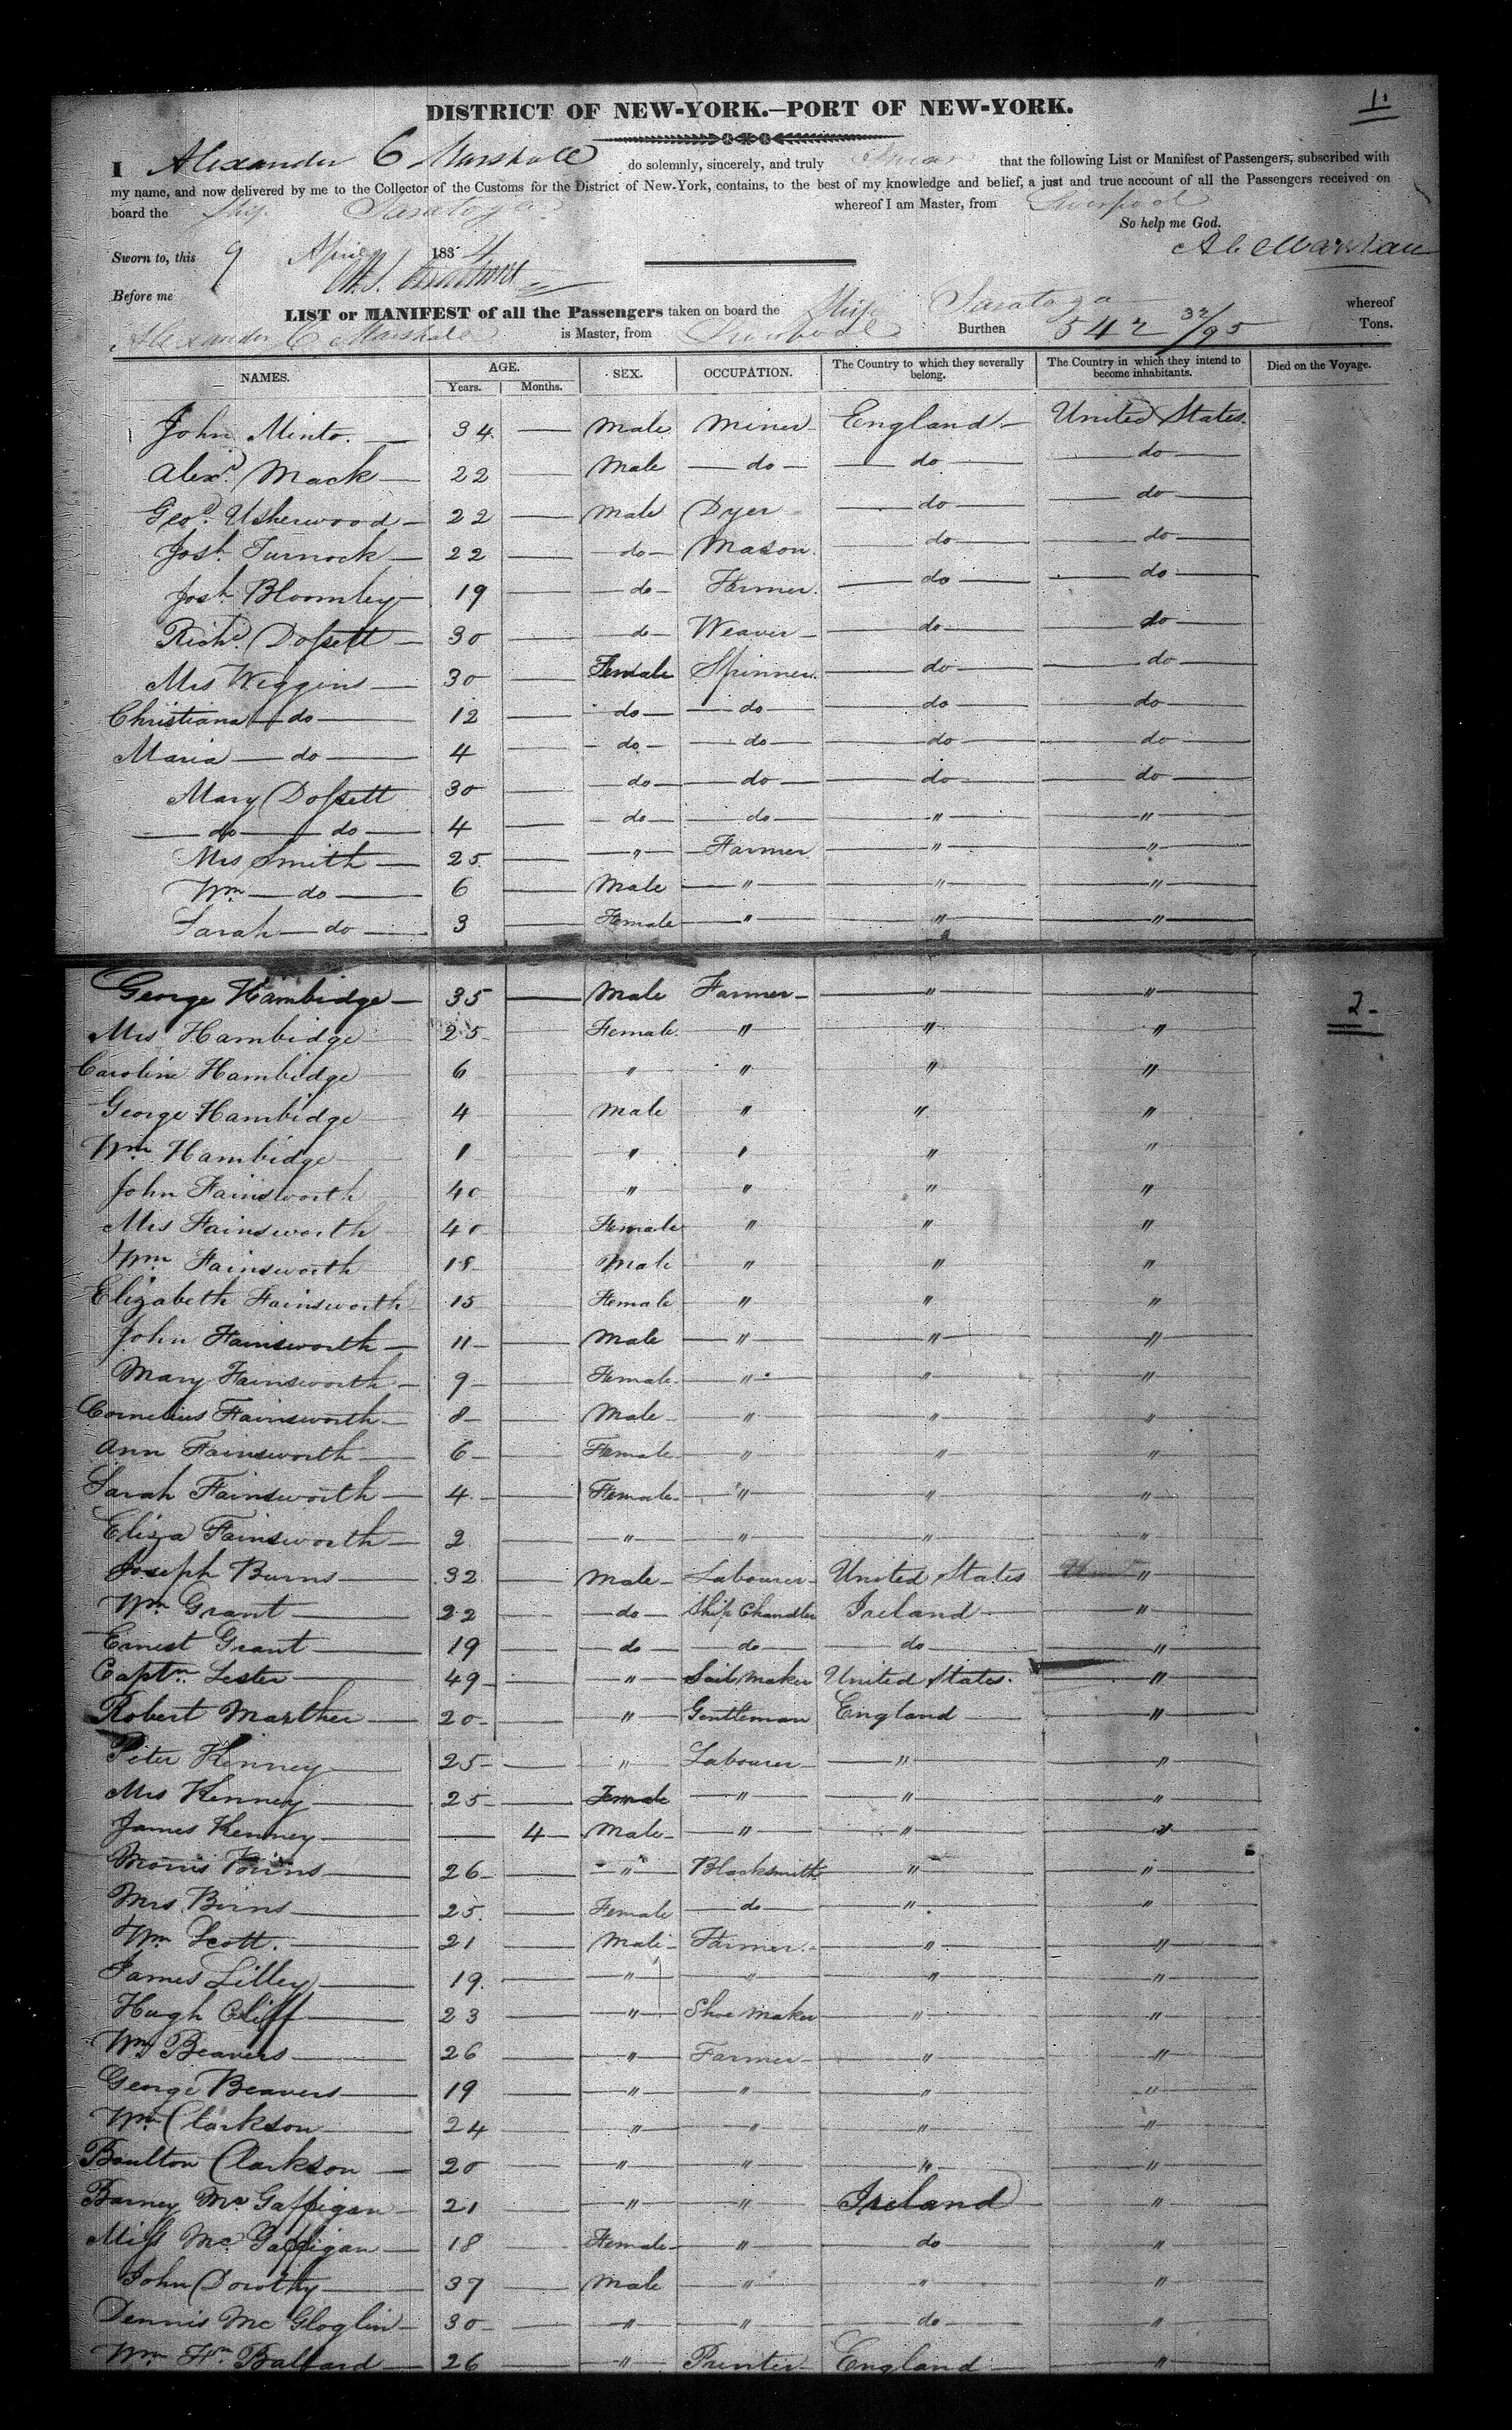 1.
DISTRICT OF NEW-YORK.—PORT OF NEW-YORK.
I Alexander C Marshall do solemnly, sincerely, and truly swear that the following List or Manifest of Passengers, subscribed with
my name, and now delivered by me to the Collector of the Customs for the District of New-York, contains, to the best of my knowledge and belief, a just and true account of all the Passengers received on
board the Ship Saratoga whereof I am Master, from Liverpool
So help me God.
Sworn to, this 9 April 1834 A C Marshall
Before me
LIST or MANIFEST of all the Passengers taken on board the Ship Saratoga whereof
Alexander C Marshall is Master, from Liverpool Burthen 542 32/95 Tons.
NAMES. AGE. Years. Months. SEX. OCCUPATION. The Country to which they severally belong. The Country in which they intend to become inhabitants. Died on the Voyage.
John Minto. — 34 — Male Miner England — United States.
Alexr. Mack — 22 — Male — do — — do — — do —
Geo. Usherwood — 22 — Male Dyer — do — — do —
Josh. Turnock — 22 — do — Mason. — do — — do —
Josh. Bloomley — 19 — do — Farmer. — do — — do —
Richd. Dossett — 30 — do — Weaver — — do — — do —
Mrs Wiggins — 30 — Female Spinner. — do — — do —
Christiana — do — 12 — do — — do — — do — — do —
Maria — do — 4 — do — — do — — do — — do —
Mary Dossett 30 — do — — do — — do — — do —
— do — do — 4 — do — — do — " "
Mrs Smith — 25 — " Farmer " "
Wm — do — 6 — Male " " "
Sarah — do — 3 — Female " " "
George Hambidge — 35 — Male Farmer — " "
2-
Mrs Hambidge 25 — Female " " "
Caroline Hambidge 6 — " " " "
George Hambidge 4 — Male " " "
Wm Hambidge 1 — " " " "
John Fainsworth 40 — " " " "
Mrs Fainsworth 40 — Female " " "
Wm Fainsworth 18 — Male " " "
Elizabeth Fainsworth 15 — Female " " "
John Fainsworth — 11 — Male " " "
Mary Fainsworth — 9 — Female " " "
Cornelius Fainsworth — 8 — Male " " "
Ann Fainsworth — 6 — Female " " "
Sarah Fainsworth — 4 — Female " " "
Eliza Fainsworth — 2 — " " " "
Joseph Burns — 32 — Male Labourer United States "
Wm Grant — 22 — do — Ship Chandler Ireland "
Ernest Grant — 19 — do — do — do — "
Captn. Lester — 49 — " Sail Maker United States. "
Robert Marther — 20 — " Gentleman England "
Peter Kenney — 25 — " Labourer " "
Mrs Kenney — 25 — Female " " "
James Kenney — — 4 — Male " " "
Morris Birns — 26 — " Blacksmith " "
Mrs Birns — 25 — Female do " "
Wm Scott. — 21 — Male Farmer " "
James Lilley — 19 — " " " "
Hugh Cliff — 23 — " Shoe Maker " "
Wm Beavers — 26 — " Farmer " "
George Beavers — 19 — " " " "
Wm Clarkson — 24 — " " " "
Boulton Clarkson — 20 — " " " "
Barney McGaffigan — 21 — " " Ireland "
Miss McGaffigan — 18 — Female " do "
John Dorothy — 37 — Male " " "
Dennis McGloglin — 30 — " " do "
Wm Hn. Ballard — 26 — " Printer England — "